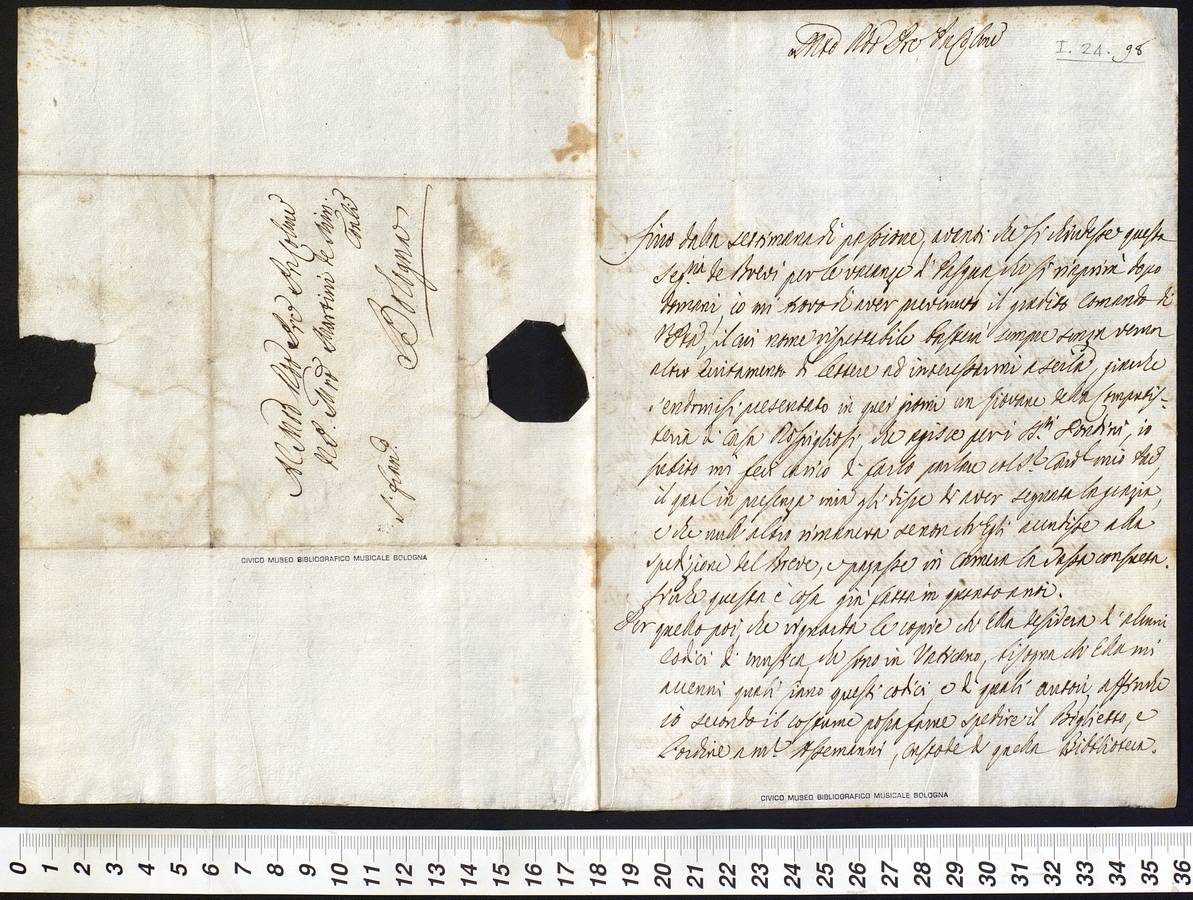 Al Molto Rdo Pre Pre Colmo
Il Pre Martini de Min:
Conli
Bologna
S. Fran.
CIVICO MUSEO BIBLIOGRAFICO MUSICALE BOLOGNA
Mto Rdo Pre Pre Colmo
I. 24. 98
Fino dalla settimana di passione, avanti che si chiudesse questa
Segria de Brevi per le vacanze di Pasqua, che si riaprirà dopo
domani io mi trovo di aver prevenuto il gradito comando di
V. Ptà, il cui nome rispettabile basterà sempre senza verun
altro eccitamento di lettere ad interessarmi a servirla, giacche
sendomisi presentato in quei giorni un giovane della Computis-
teria di Casa Rospigliosi, che agisce per i SS.ri Fontini, io
subito mi feci carico di farlo parlare col Sr. Cardl mio
il qual in presenza mia gli disse di aver segnata la grazia,
e che null'altro rimaneva senon ch'Egli accudisse alla
spedizione del Breve, e pagasse in Camera la Tassa consueta.
Sicche questa è cosa già fatta in quanto a noi.
Per quello poi, che riguarda le copie ch'Ella desidera d'alcuni
Codici di musica, che sono in Vaticano, bisogna ch'Ella mi
accenni quali siano questi codici e di quali autori, affinche
io secondo il costume possa farne spedire il Biglietto, e
l'ordine a mr. Assemanni, Custode di quella Biblioteca.
CIVICO MUSEO BIBLIOGRAFICO MUSICALE BOLOGNA
0 1 2 3 4 5 6 7 8 9 10 11 12 13 14 15 16 17 18 19 20 21 22 23 24 25 26 27 28 29 30 31 32 33 34 35 36